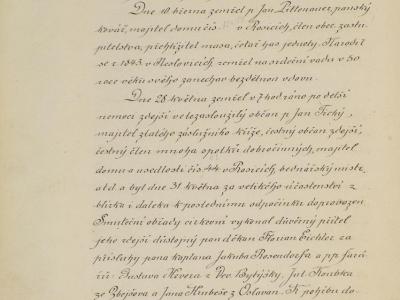 Dne 10 března zemřel p Jan Pittnauer, panský
kovář, majitel domu čís. v Rosicích, člen obec. zastu-
pitelstva, přehlížitel masa, četař has. jednoty. Narodil
se r 1843 v Neslovicích, zemřel na srdeční vadu v 50
roce věku svého zanechav bezdětnou vdovu.
Dne 28 května zemřel v 7 hod ráno po delší
nemoci zdejší velezasloužilý občan p Jan Tichý,
majitel zlatého záslužního kříže, čestný občan zdejší,
čestný člen mnoha spolků dobročinných, majitel
domu a usedlosti čís. 44 v Rosicích, bednářský mistr,
atd. a byl dne 31 května za velikého účastenství z
blízka i daleka k poslednímu odpočinku doprovozen.
Smuteční obřady církevní vykonal důvěrný přítel
jeho zdejší důstojný pan děkan Florian Eichler za
přísluhy pana kaplana Jakuba Rosendorfa a pp. fará-
řů: Gustava Hevera z Dov. Bytýšky, Jul. Koubka
ze Zbejšova a Jana Humbeše z Oslavan. K pohřbu do-